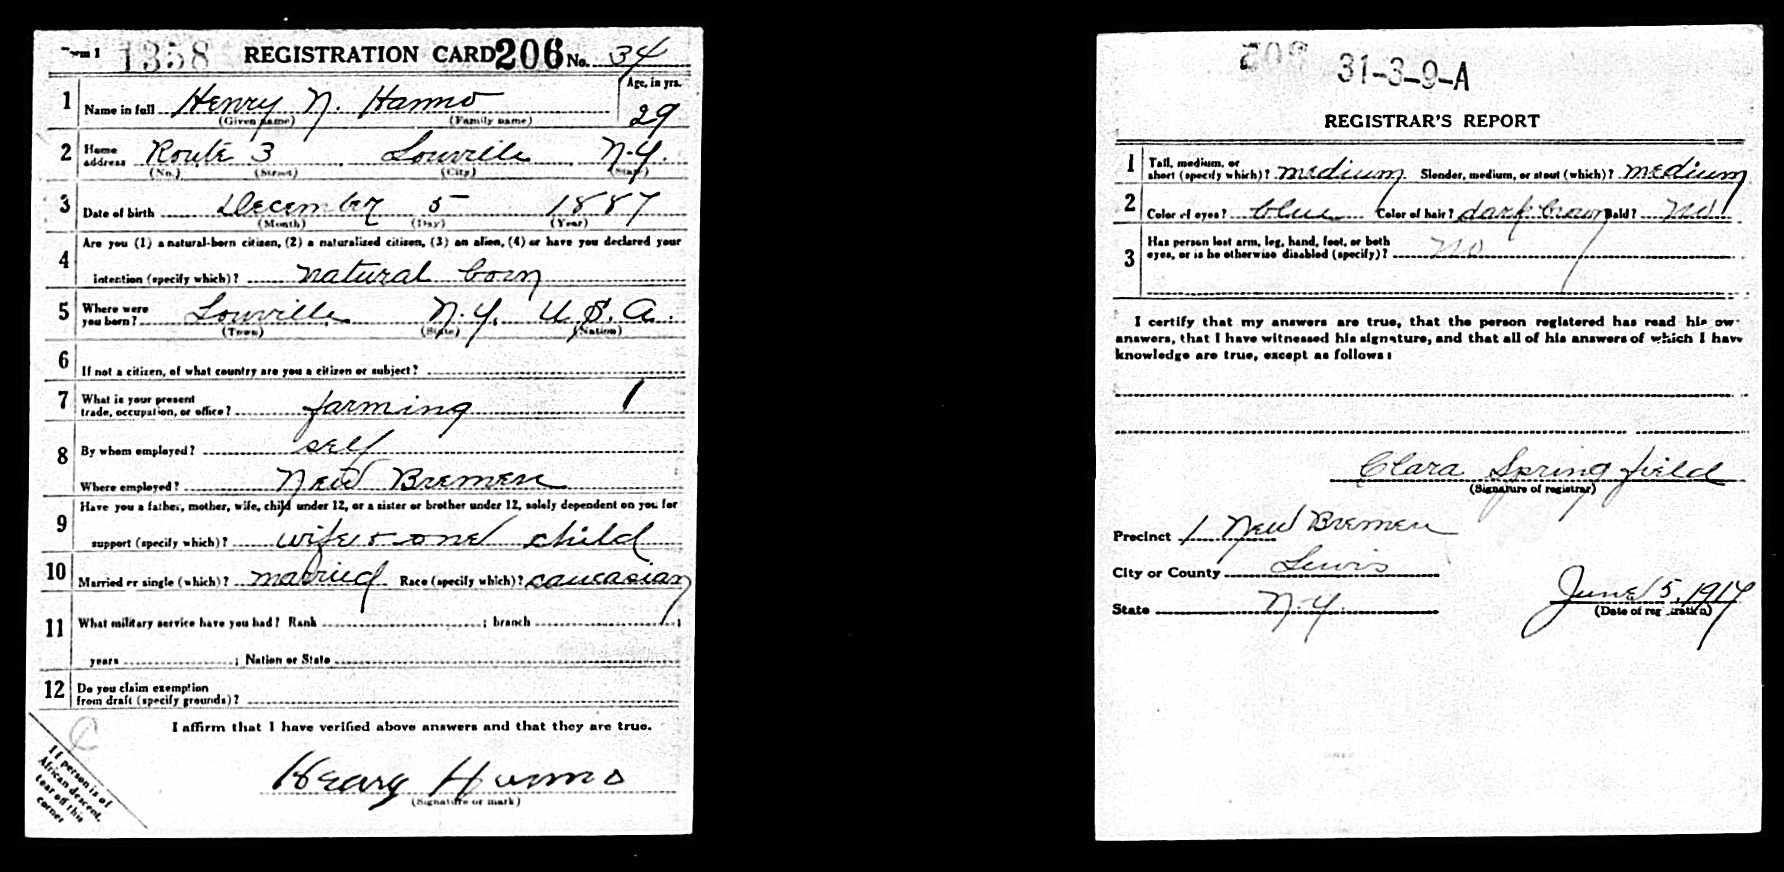 Form 1 1358 REGISTRATION CARD 206 No. 34
Age, in yrs.
1 Name in full Henry N. Hanno 29
(Given name) (Family name)
2 Home address Route 3 Lowville N.Y.
(No.) (Street) (City) (State)
3 Date of birth December 5 1887
(Month) (Day) (Year)
4 Are you (1) a natural-born citizen, (2) a naturalized citizen, (3) an alien, (4) or have you declared your
intention (specify which)? natural born
5 Where were you born? Lowville N.Y. U.S.A.
(Town) (State) (Nation)
6 If not a citizen, of what country are you a citizen or subject?
7 What is your present
trade, occupation, or office? farming 1
8 By whom employed? self
Where employed? New Bremen
9 Have you a father, mother, wife, child under 12, or a sister or brother under 12, solely dependent on you for
support (specify which)? wife & one child
10 Married or single (which)? married Race (specify which)? caucasian
11 What military service have you had? Rank ; branch ;
years ; Nation or State
12 Do you claim exemption
from draft (specify grounds)?
I affirm that I have verified above answers and that they are true.
Henry Hanno
(Signature or mark)
C
If person is of
African descent,
tear off this
corner
206 31-3-9-A
REGISTRAR'S REPORT
1 Tall, medium, or
short (specify which)? medium Slender, medium, or stout (which)? medium
2 Color of eyes? blue Color of hair? dark brown Bald? No
3 Has person lost arm, leg, hand, foot, or both
eyes, or is he otherwise disabled (specify)? No
I certify that my answers are true, that the person registered has read his ow
answers, that I have witnessed his signature, and that all of his answers of which I have
knowledge are true, except as follows:
Clara Springfield
(Signature of registrar)
Precinct 1 New Bremen
City or County Lewis
State N.Y. June 5, 1917
(Date of registration)